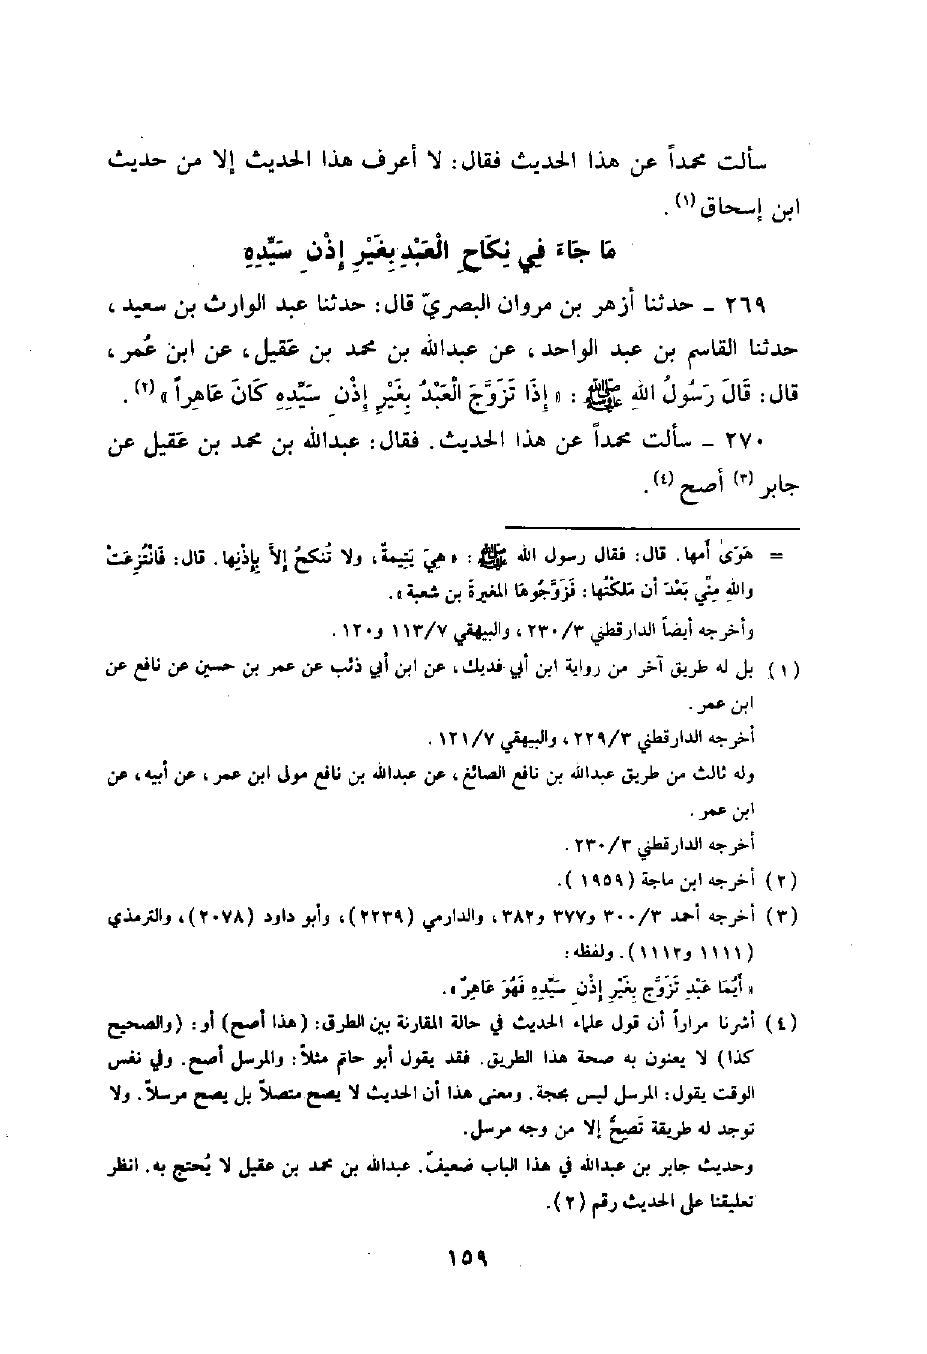 سألت محمداً عن هذا الحديث فقال: لا أعرف هذا الحديث إلا من حديث
ابن إسحاق (١).
مَا جَاءَ فِي نِكَاحِ الْعَبْدِ بِغَيْرِ إِذْنِ سَيِّدِهِ
٢٦٩ - حدثنا أزهر بن مروان البصريّ قال: حدثنا عبد الوارث بن سعيد،
حدثنا القاسم بن عبد الواحد، عن عبدالله بن محمد بن عَقيل، عن ابن عُمر،
قال: قَالَ رَسُولُ اللهِ ﷺ: «إِذَا تَزَوَّجَ الْعَبْدُ بِغَيْرِ إِذْنِ سَيِّدِهِ كَانَ عَاهِراً» (٢).
٢٧٠ - سألت محمداً عن هذا الحديث. فقال: عبدالله بن محمد بن عَقيل عن
جابر (٣) أصح (٤).
= هَوَىٰ أُمها. قال: فقال رسول الله ﷺ: «هِيَ يَتِيمةٌ، ولا تُنكحُ إلاَّ بِإِذْنِها. قال: فَانْتُزِعَتْ
واللهِ مِنِّي بَعْدَ أن مَلكْتُها: فَزَوَّجُوهَا المغيرةَ بن شعبة».
وأخرجه أيضاً الدارقطني ٢٣٠/٣، والبيهقي ١١٣/٧ و١٢٠.
(١) بل له طريق آخر من رواية ابن أبي فديك، عن ابن أبي ذئب عن عمر بن حسين عن نافع عن
ابن عمر.
أخرجه الدارقطني ٢٢٩/٣، والبيهقي ١٢١/٧.
وله ثالث من طريق عبدالله بن نافع الصائغ، عن عبدالله بن نافع مولى ابن عمر، عن أبيه، عن
ابن عمر.
أخرجه الدارقطني ٢٣٠/٣.
(٢) أخرجه ابن ماجة (١٩٥٩).
(٣) أخرجه أحمد ٣٠٠/٣ و٣٧٧ و٣٨٢، والدارمي (٢٢٣٩)، وأبو داود (٢٠٧٨)، والترمذي
(١١١١ و١١١٢). ولفظه:
«أَيُّمَا عَبْدٍ تَزَوَّجَ بِغَيْرِ إِذْنِ سَيِّدِهِ فَهُوَ عَاهِرٌ».
(٤) أشرنا مراراً أن قول علماء الحديث في حالة المقارنة بين الطرق: (هذا أصح) أو: (والصحيح
كذا) لا يعنون به صحة هذا الطريق. فقد يقول أبو حاتم مثلاً: والمرسل أصح. وفي نفس
الوقت يقول: المرسل ليس بحجة. ومعنى هذا أن الحديث لا يصح متصلاً بل يصح مرسلاً. ولا
توجد له طريقة تَصِحُّ إلا من وجه مرسل.
وحديث جابر بن عبدالله في هذا الباب ضعيفٌ. عبدالله بن محمد بن عقيل لا يُحتج به. انظر
تعليقنا على الحديث رقم (٢).
١٥٩